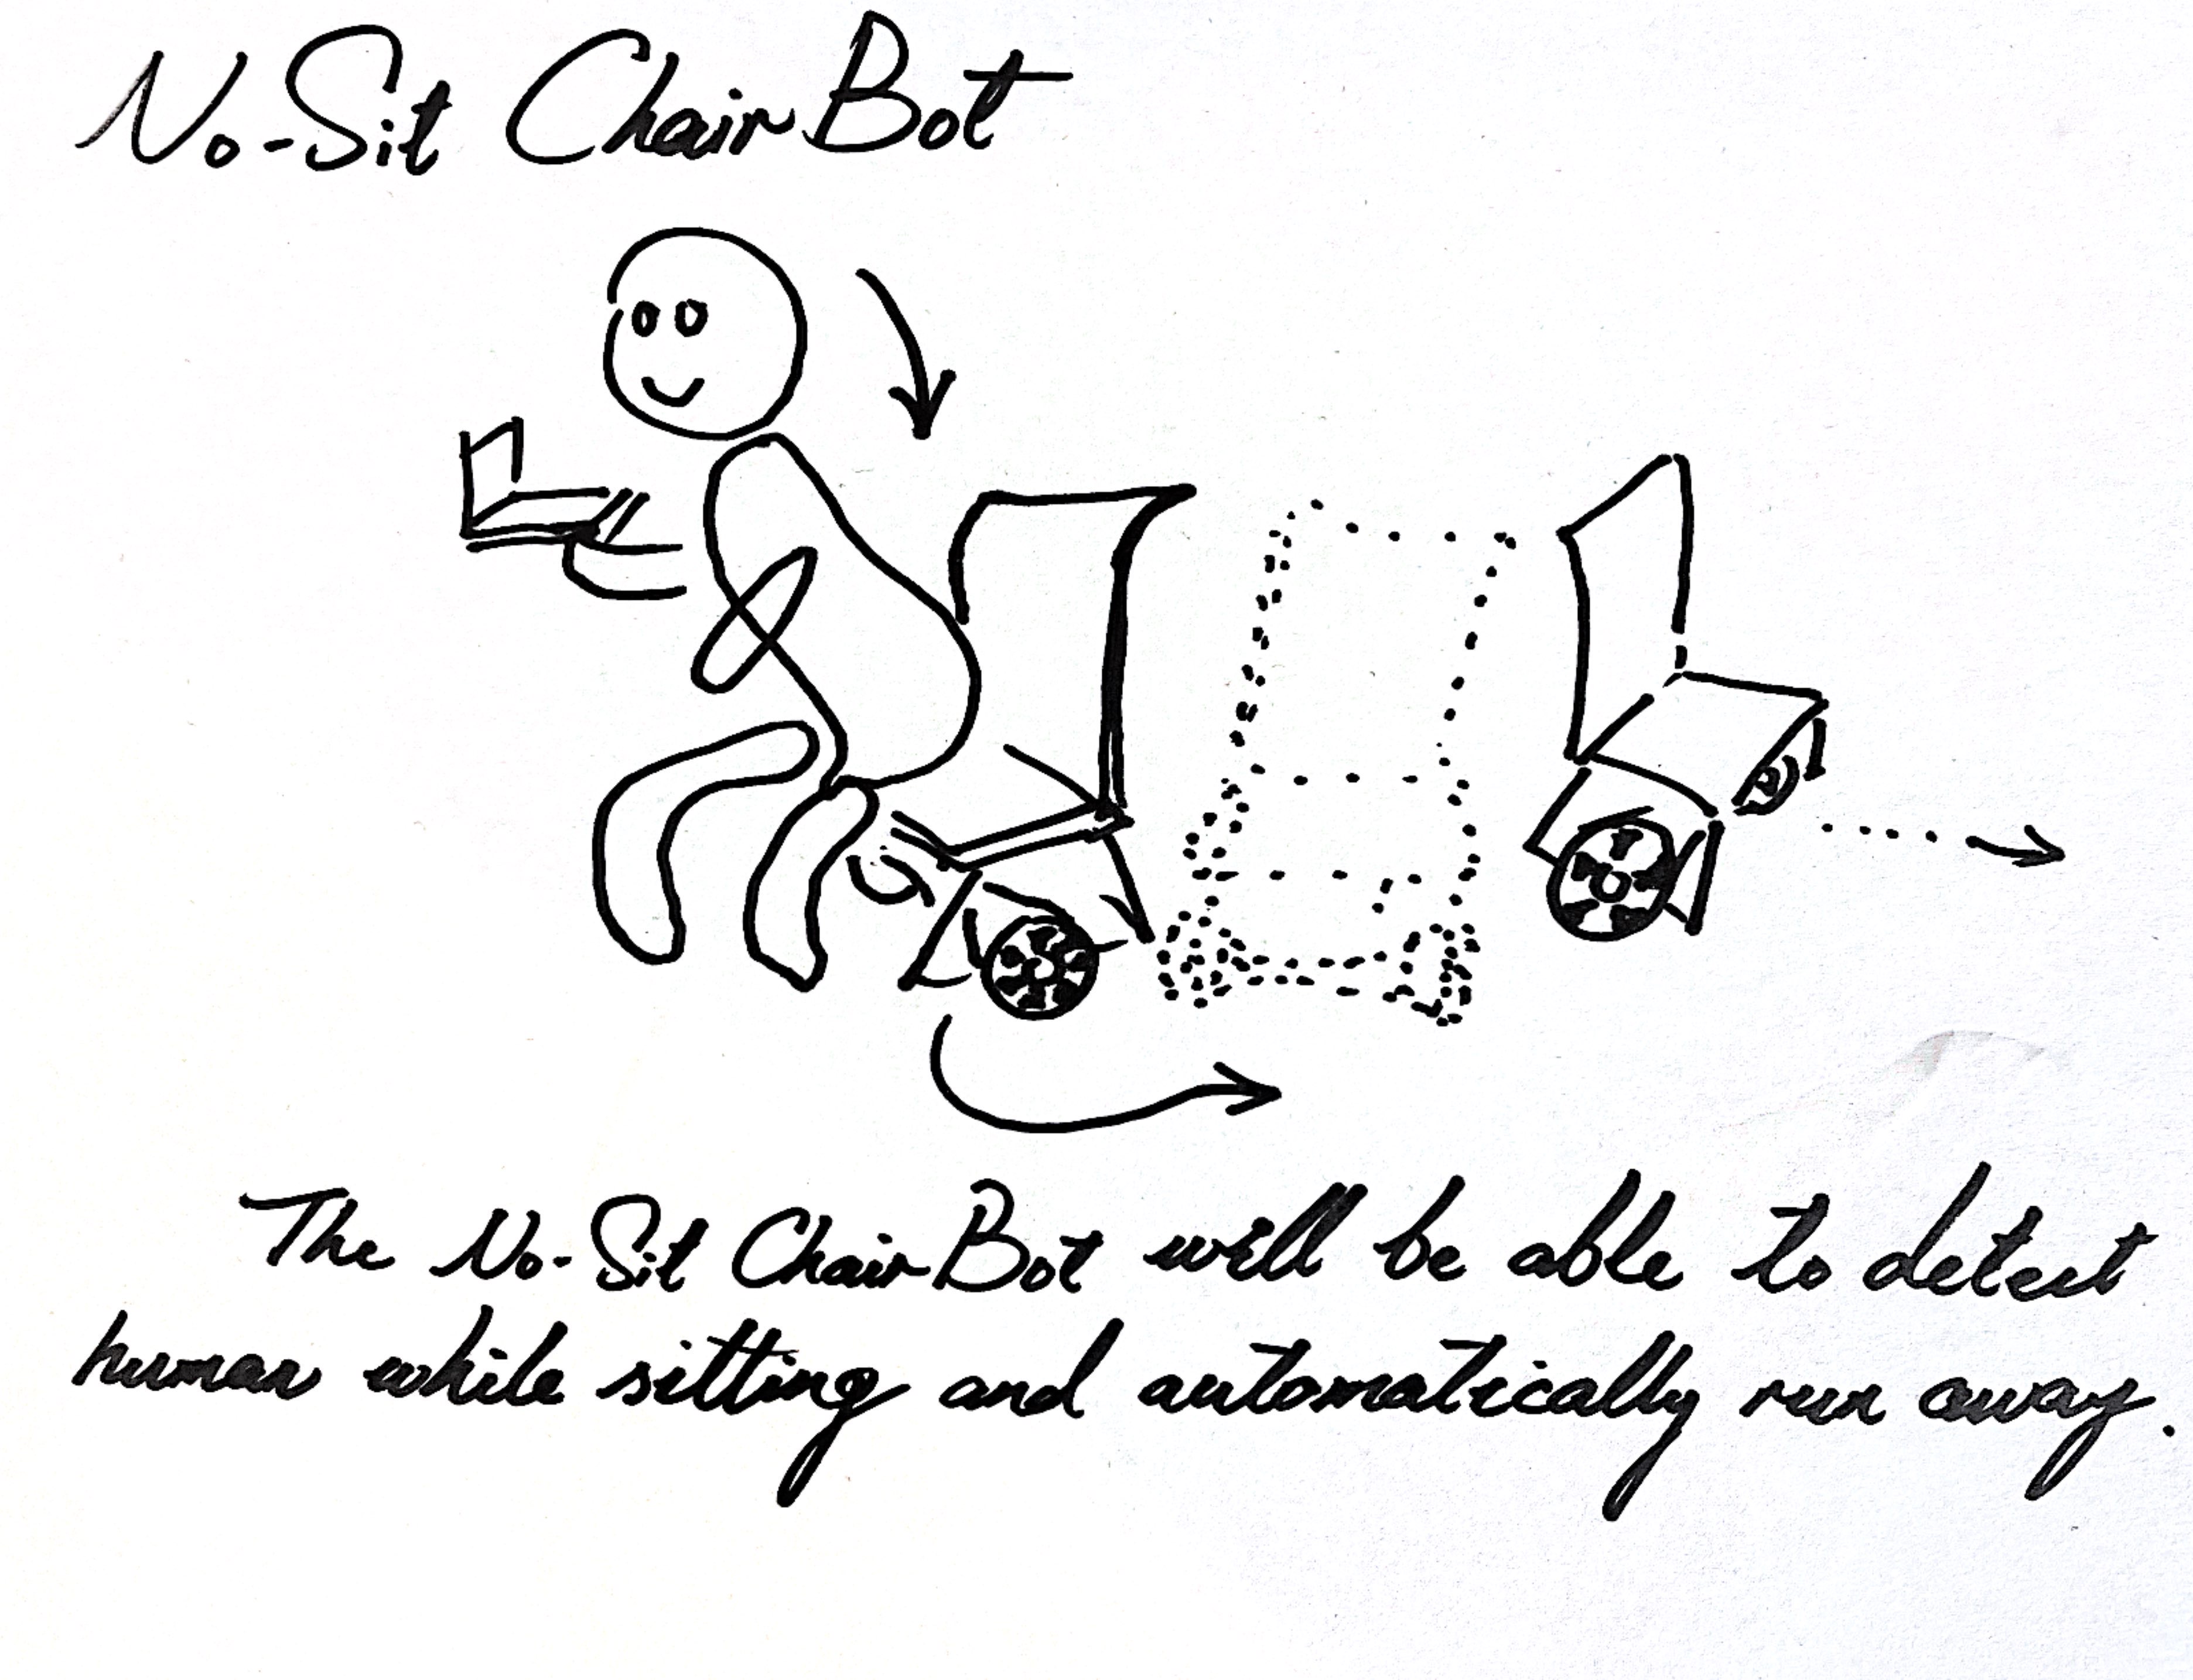 No-Sit Chair Bot
The No-Sit Chair Bot will be able to detect
human while sitting and automatically run away.